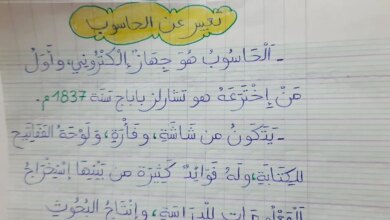 تعبير عن الحاسوب
- اَلْحَاسُوبُ هُوَ جِهَازٌ إِلِكْتْرُونِي، وَأَوَّلُ
مَنْ إِخْتَرَعَهُ هو تشارلز باباج سَنَة 1837م.
- يَتَكَوَّنُ مِن شَاشَةٍ، وفَأْرَةٍ، وَلَوْحَةُ المَفَاتِيحِ
لِلْكِتَابَةِ، وَلَهُ فَوَائِدُ كَثِيرَة مِن بَيْنِهَا إِسْتِخْرَاجُ
المَعْلُومَات لِلدِّرَاسَةِ، وإِنْتَاجُ البُحُوثِ